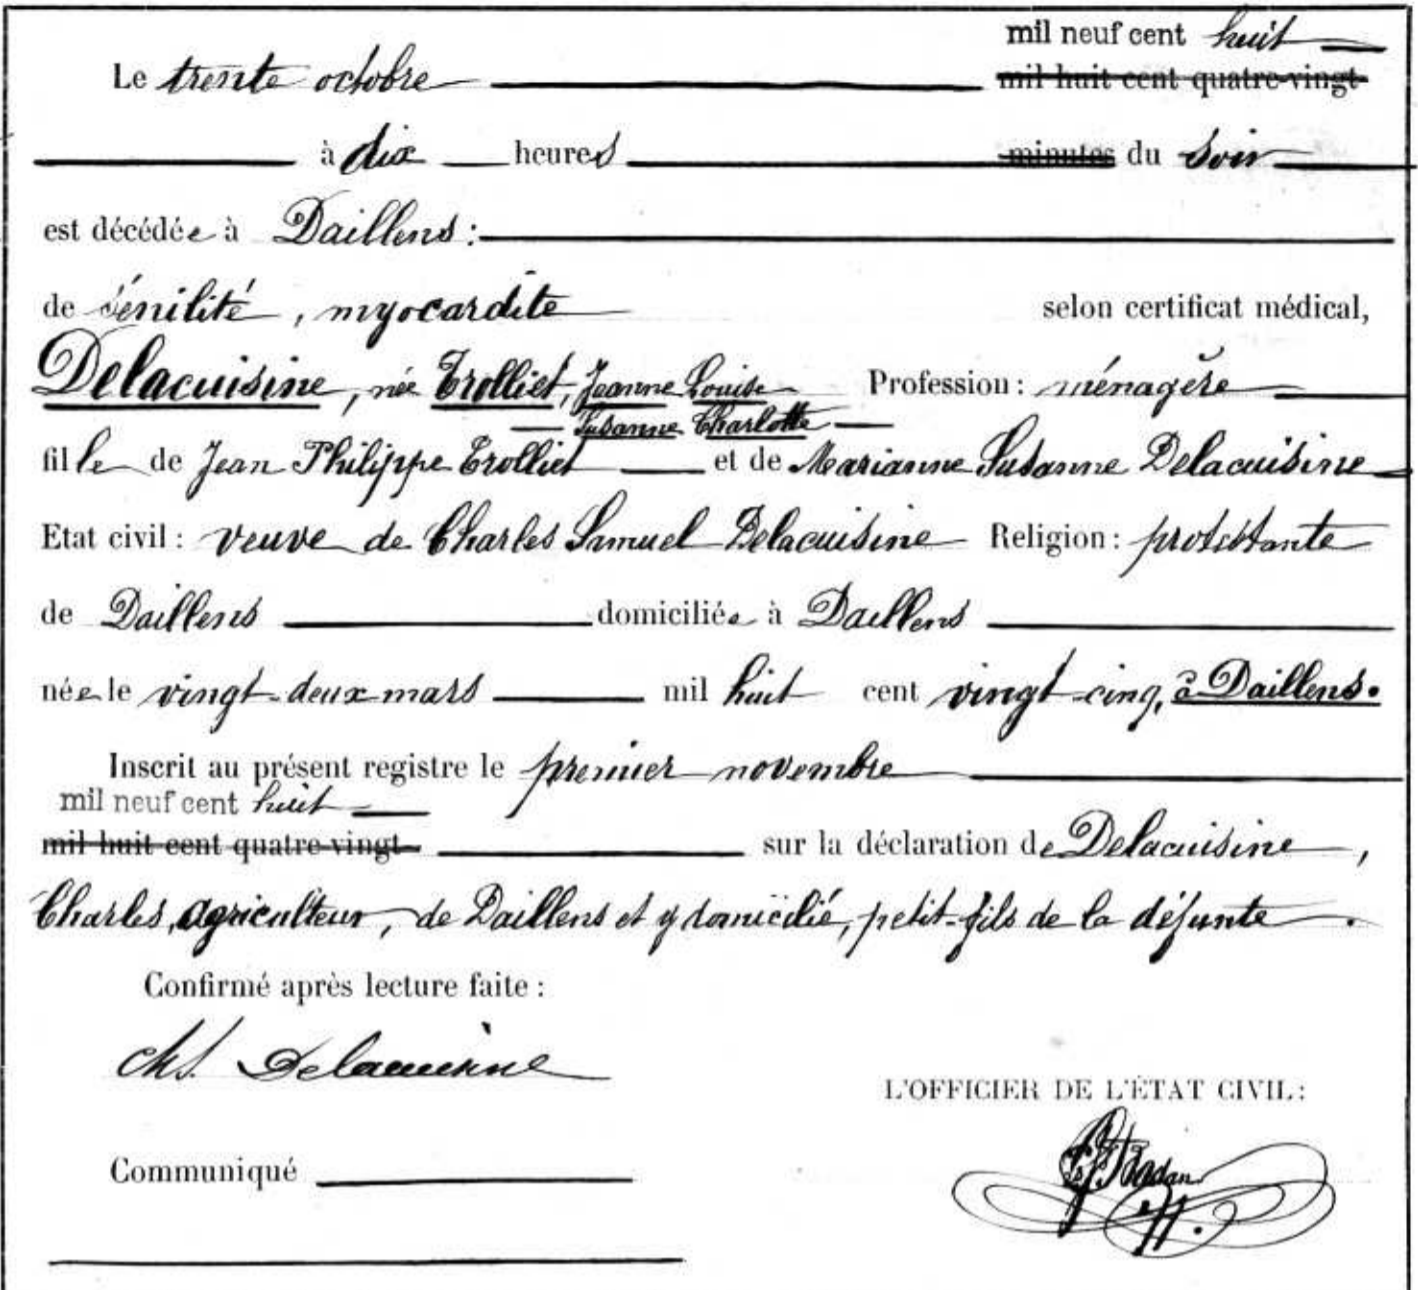 mil neuf cent huit
Le trente octobre mil huit cent quatre-vingt
à dix heures minutes du soir
est décédée à Daillens :
de sénilité, myocardite selon certificat médical,
Delacuisine, née Trolliet, Jeanne Louise Profession : ménagère
Susanne Charlotte
fille de Jean Philippe Trolliet et de Marianne Susanne Delacuisine
Etat civil : veuve de Charles Samuel Delacuisine Religion : protestante
de Daillens domiciliée à Daillens
née le vingt-deux mars mil huit cent vingt-cinq, à Daillens.
Inscrit au présent registre le premier novembre
mil neuf cent huit
mil huit cent quatre-vingt sur la déclaration de Delacuisine,
Charles, agriculteur, de Daillens et y domicilié, petit-fils de la défunte.
Confirmé après lecture faite :
Chs. Delacuisine
L'OFFICIER DE L'ÉTAT CIVIL :
Communiqué